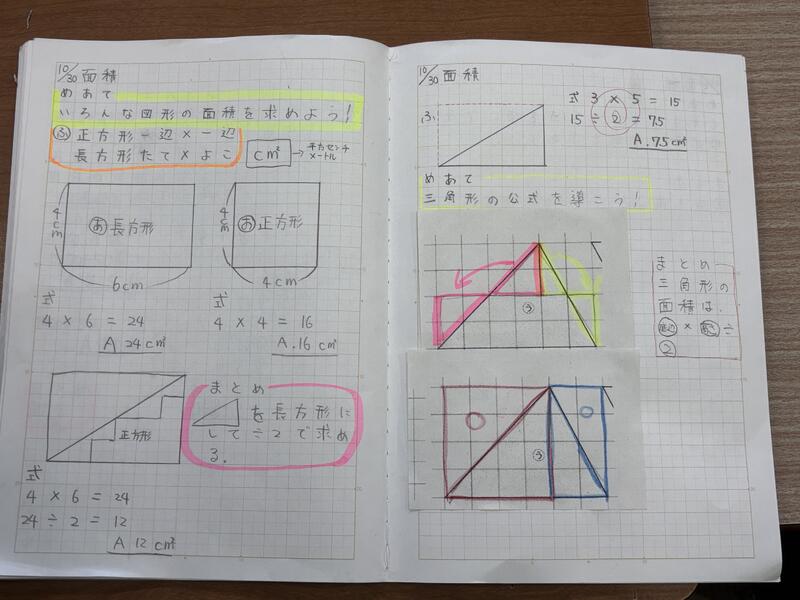 10/30 面積
めあて
いろんな図形の面積を求めよう!
ふ 正方形一辺×一辺
長方形たて×よこ
cm² → 平方センチメートル
4cm
あ 長方形
6cm
4cm
あ 正方形
4cm
式
4×6=24
A 24cm²
式
4×4=16
A.16cm²
正方形
まとめ
を長方形に
して÷2で求め
る.
式
4×6=24
24÷2=12
A 12cm²
10/30 面積
ふ
式 3×5=15
15÷2=7.5
A.7.5cm²
めあて
三角形の公式を導こう!
う
う
まとめ
三角形の
面積は.
底辺×高さ÷
2